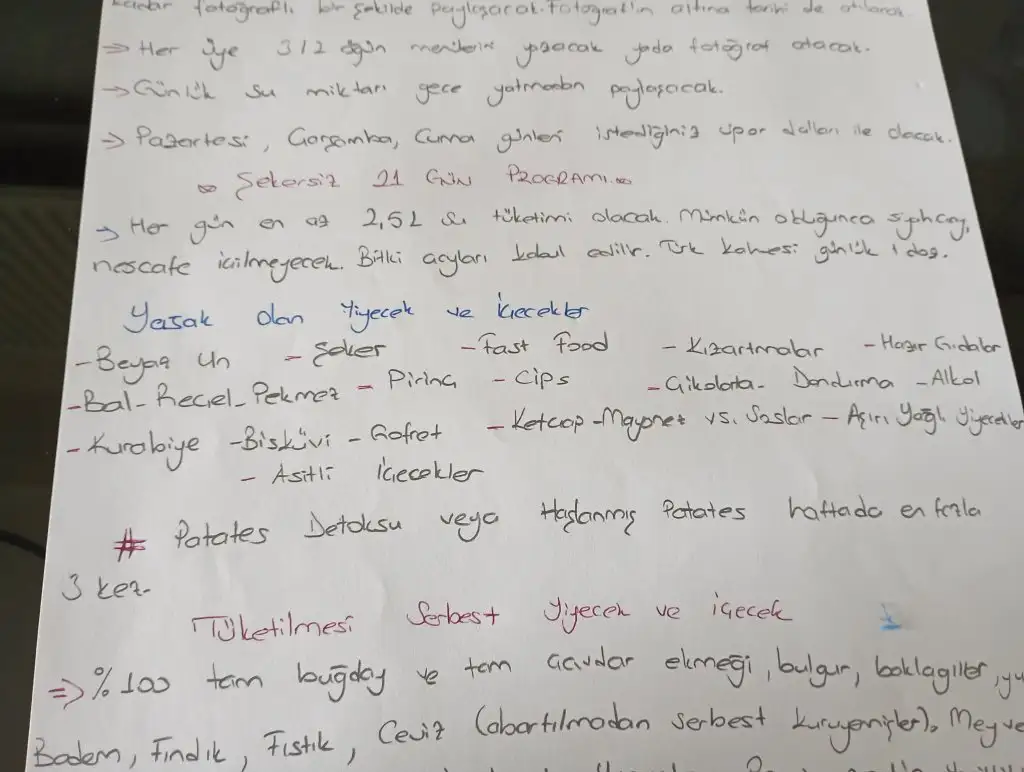 kadar fotoğraflı bir şekilde paylaşacak. Fotoğrafın altına tarihi de atılacak.
→ Her üye 3/2 öğün menülerini yazacak yada fotoğraf atacak.
→ Günlük su miktarı gece yatmadan paylaşacak.
→ Pazartesi, Çarşamba, Cuma günleri istediğiniz spor dalları ile olacak.
∞ Şekersiz 21 GÜN PROGRAMI ∞
→ Her gün en az 2,5L su tüketimi olacak. Mümkün olduğunca siyah çay,
nescafe içilmeyecek. Bitki çayları kabul edilir. Türk kahvesi günlük 1 doz.
Yasak olan Yiyecek ve İçecekler
- Beyaz un - Şeker - Fast Food - Kızartmalar - Hazır Gıdalar
- Bal - Reçel - Pekmez - Pirinç - Cips - Çikolata - Dondurma - Alkol
- Kurabiye - Bisküvi - Gofret - Ketçap - Mayonez vs. Soslar - Aşırı Yağlı Yiyecekler
- Asitli İçecekler
# Patates Detoksu veya Haşlanmış Patates haftada en fazla
3 kez.
Tüketilmesi Serbest Yiyecek ve içecek
⇒ %100 tam buğday ve tam çavdar ekmeği, bulgur, baklagiller, yu
Badem, Fındık, Fıstık, Ceviz (abartılmadan serbest kuruyemişler). Meyve